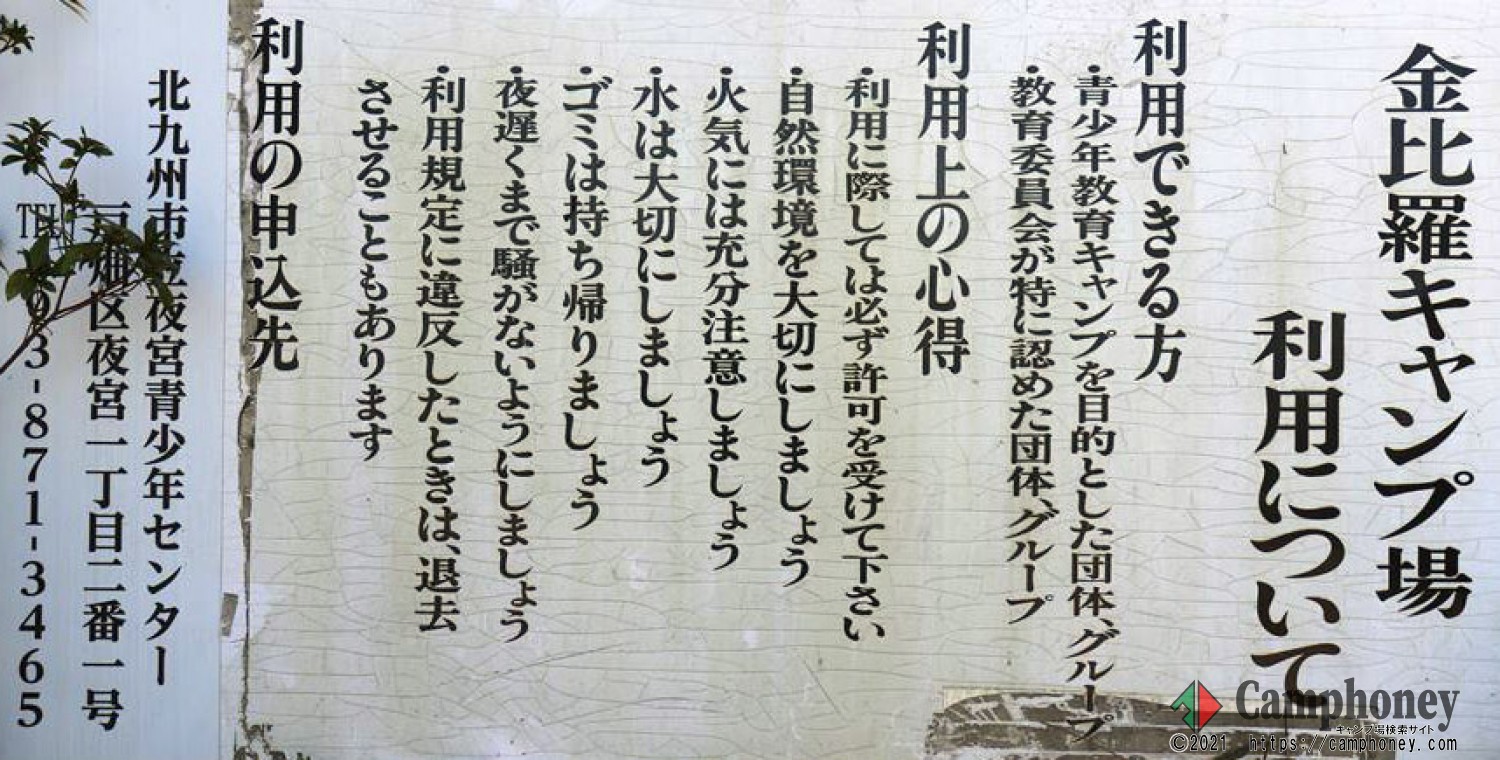 金比羅キャンプ場
利用について
利用できる方
・青少年教育キャンプを目的とした団体、グループ
・教育委員会が特に認めた団体、グループ
利用上の心得
・利用に際しては必ず許可を受けて下さい
・自然環境を大切にしましょう
・火気には充分注意しましょう
・水は大切にしましょう
・ゴミは持ち帰りましょう
・夜遅くまで騒がないようにしましょう
・利用規定に違反したときは、退去
させることもあります
利用の申込先
北九州市立夜宮青少年センター
戸畑区夜宮一丁目二番一号
TEL 093-871-3465
Camphoney
キャンプ場検索サイト
©2021 https://camphoney.com